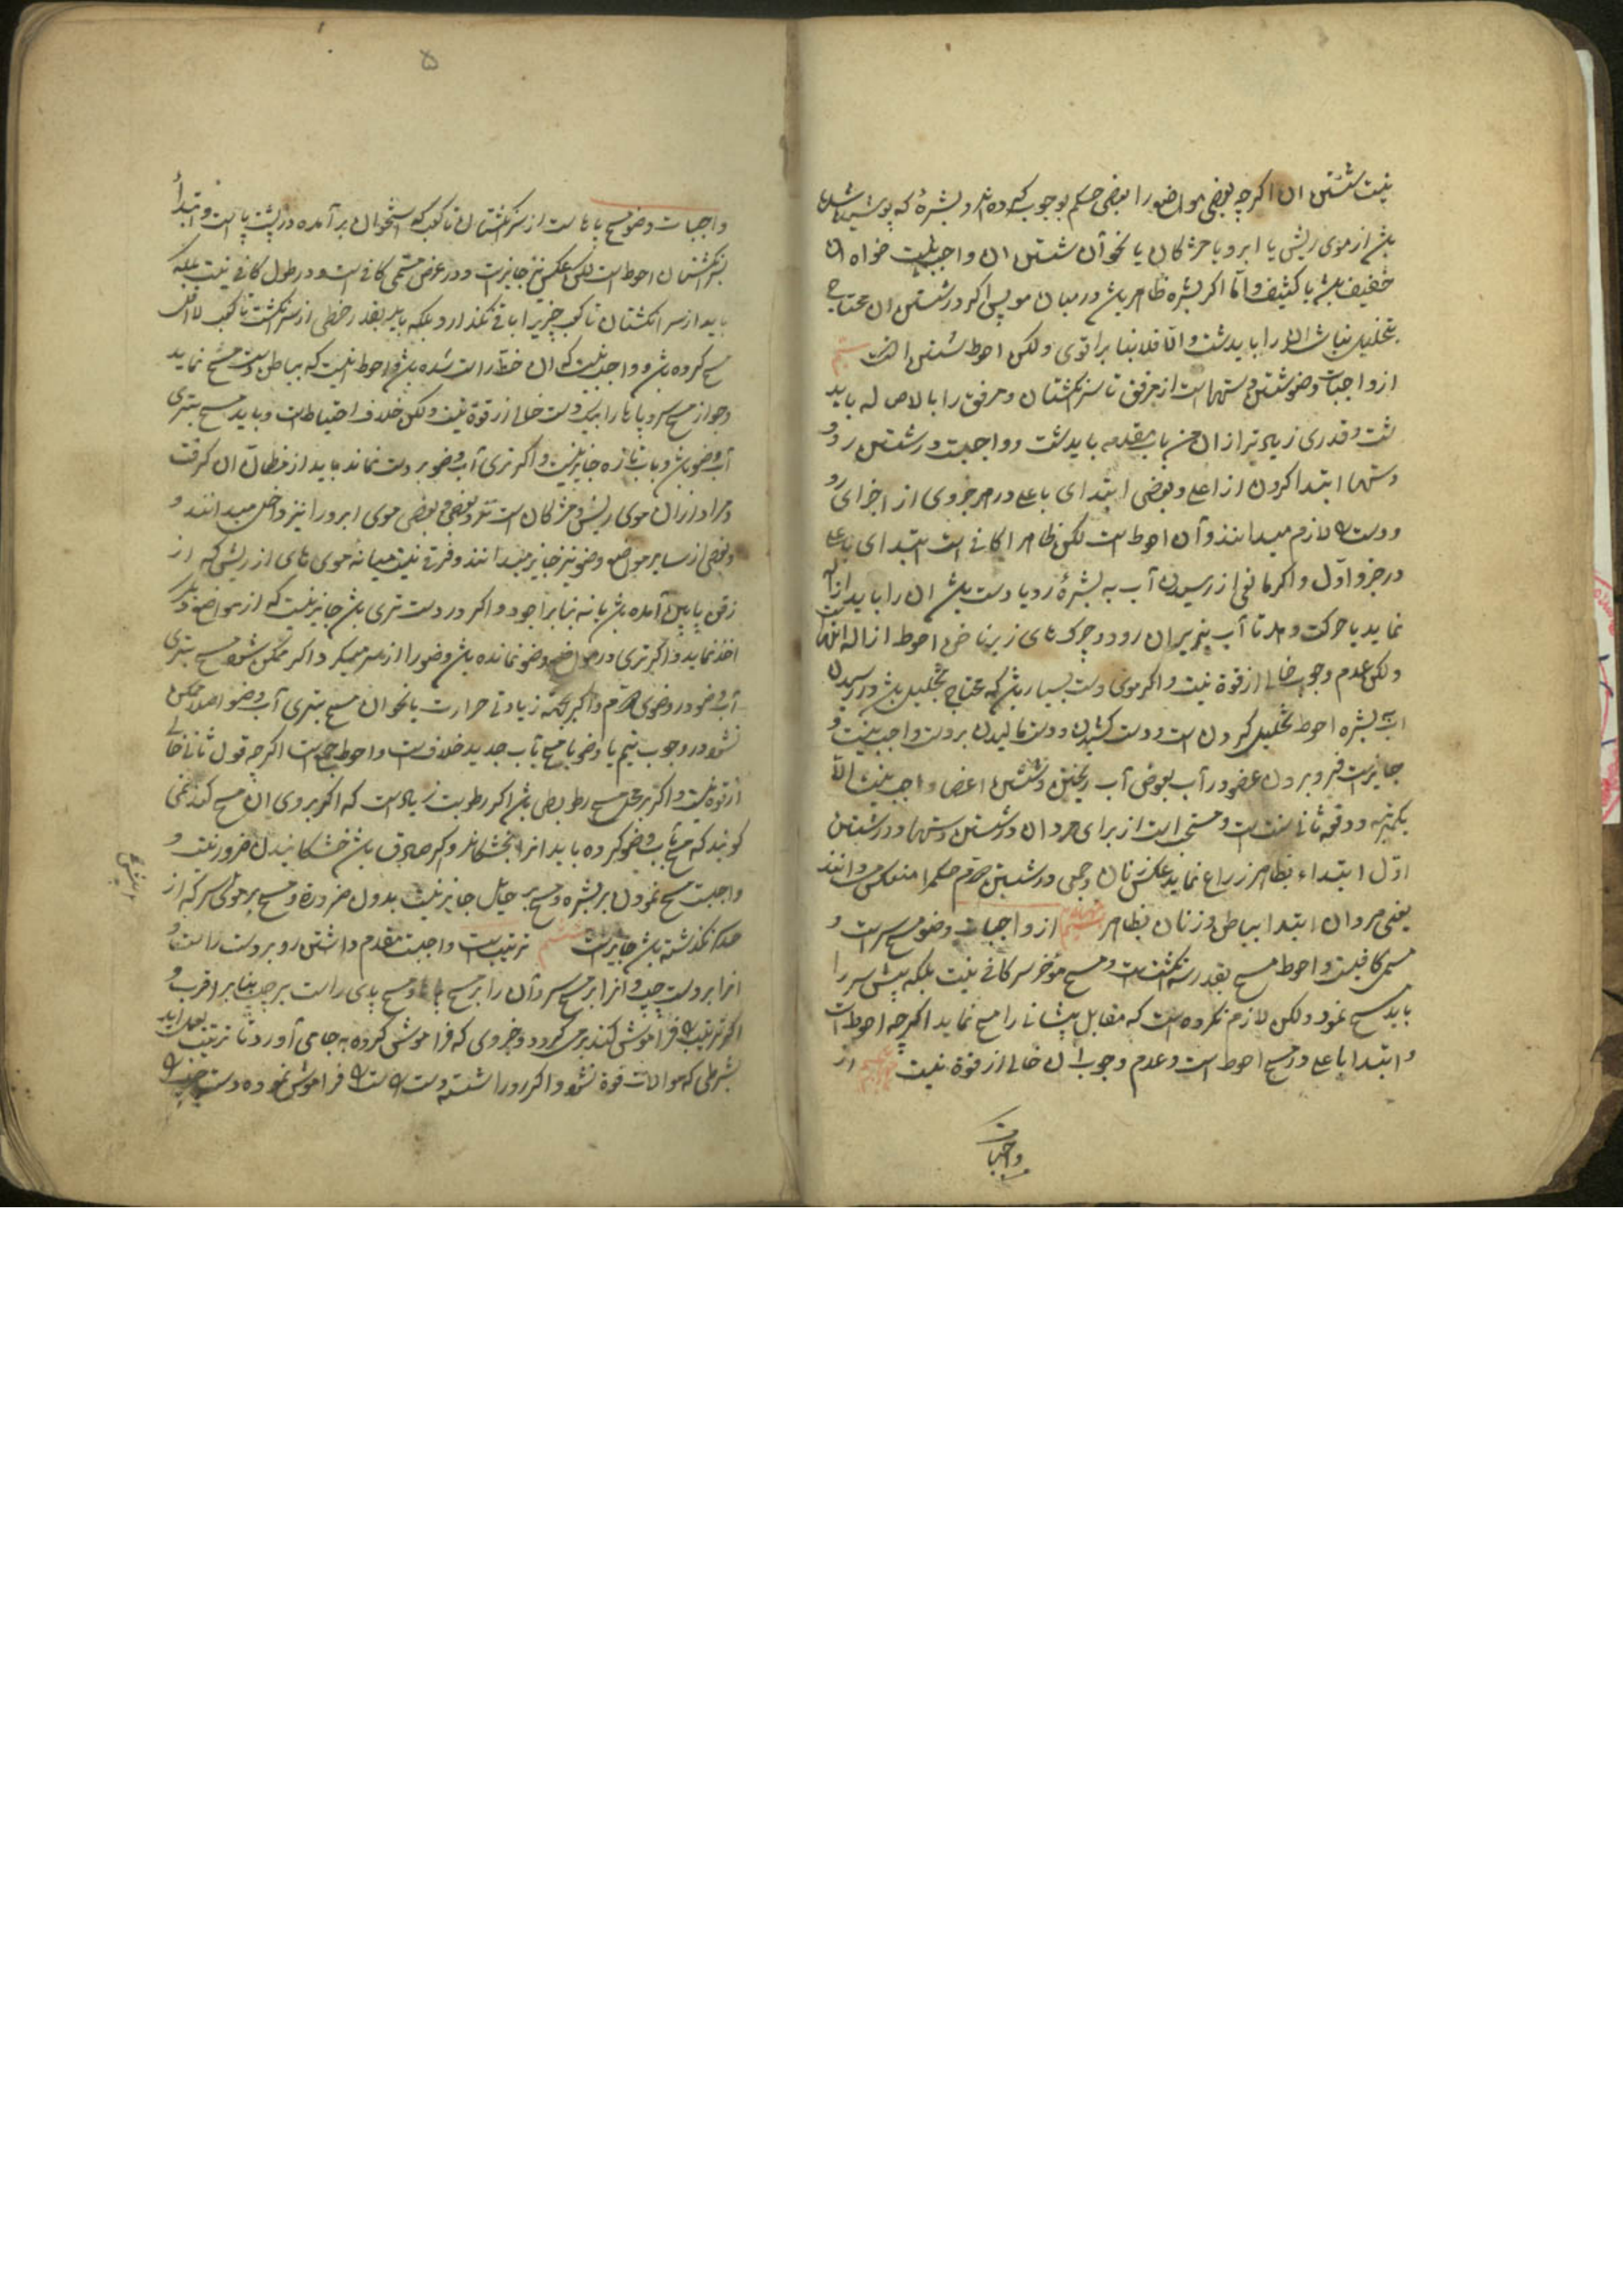 نیست شستن ان اگرچه بعضی مواضع را بعضی حکم بوجوب کرده‌اند و بشرهٔ که پوشیده شده
باشد از موی ریش یا ابرو یا مژگان یا نحو آن شستن ان واجب نیست خواه ان
خفیف باشد یا کثیف و امّا اگر بشره ظاهر باشد در میان مو پس اگر در شستن ان محتاج
بتخلیل نباشد ان را باید شست و الّا فلا بنا بر اقوی و لکن احوط شستن است
از واجبات وضو شستن دستها است از مرفق تا سر انگشتان و مرفق را بالاصاله باید
شست و قدری زیاده‌تر از ان من باب مقدمه باید شست و واجبست در شستن رو و
دستها ابتدا کردن از اعلی و بعضی ابتدای باعلی در هر جزوی از اجزای رو
و دست لازم میدانند و آن احوط است لکن ظاهرا کافی است ابتدای باعلی
در جزو اوّل و اگر مانعی از رسیدن آب به بشرهٔ رو یا دست باشد ان را باید ازاله
نماید یا حرکت دهد تا آب بزیر ان رود و چرک‌های زیر ناخن احوط ازاله انهاست
و لکن عدم وجوب خالی از قوة نیست و اگر موی دست بسیار باشد که محتاج بتخلیل باشد در رسیدن
اب به بشره احوط تخلیل کردن است و دست کشیدن و دست مالیدن بر دست واجب نیست و
جایز است فرو بردن عضو در آب بعوض آب ریختن و شستن اعضا واجب نیست الّا
یکمرتبه و دفعه ثانی سنت است و مستحب است از برای مردان در شستن دستها در شستن
اوّل ابتداء بظاهر زراع نماید عکس زنان و جمعی در شستن دوّم حکم را منعکس میدانند
یعنی مردان ابتدا بباطن و زنان بظاهر از واجبات وضو مسح سر است و
مسمی کافیست و احوط مسح بقدر سه انگشت است و مسح مؤخر سر کافی نیست بلکه پیش سر را
باید مسح نمود و لکن لازم نکرده است که مقابل پیشانی را مسح نماید اگرچه احوط است
و ابتدا باعلی در مسح احوط است و عدم وجوب ان خالی از قوة نیست از
واجبات
۵
واجبات وضو مسح پاها است از سر انگشتان تا کعب که استخوان بر آمده در پشت پا است و ابتدا
بسر انگشتان احوط است لکن عکس نیز جایز است و در عرض مسمی کافی است و در طول کافی نیست بلکه
باید از سر انگشتان تا کعب چیزی را باقی نگذارد بلکه باید بقدر خطی از سر انگشت تا کعب لااقل
مسح کرده باشد و واجب نیست که ان خط راست باشد و احوط انست که بباطن دست مسح نماید
و جواز مسح سر و پاها را بیک دست خالی از قوة نیست و لکن خلاف احتیاط است و باید مسح بتری
آب وضو باشد و باب تازه جایز نیست و اگر تری آب وضو بر دست نماند باید از مظانّ ان گرفت
و مراد از ان موی ریش و مژگان است و بعضی موی ابرو را نیز داخل میدانند و
بعضی از سایر مواضع وضو نیز جایز میدانند و فرقی نیست میانه موی‌های از ریش که از
زقن پایین آمده باشد یا نه بنا بر اجود و اگر در دست تری باشد جایز نیست که از مواضع دیگر
اخذ نماید و اگر تری در مواضع وضو نمانده باشد وضو را از سر میگیرد و اگر ممکن نشود مسح بتری
آب وضو در وضوی دوّم و اگر بجهة زیادتی حرارت یا نحو ان مسح بتری آب وضو اصلا ممکن
نشود در وجوب تیمم یا وضو با مسح بآب جدید خلاف است و احوط جمع است اگرچه قول ثانی خالی
از قوة نیست و اگر بر محل مسح رطوبتی باشد اگر رطوبت زیاد است که اگر بروی ان مسح کند نمی
گویند که مسح بآب وضو کرده باید انرا بخشکاند و اگر صادق باشد خشکانیدن ضرور نیست و
واجبست مسح نمودن بر بشره و مسح بر حایل جایز نیست بدون ضرورة و مسح بر موی سر که از
حد نگذشته باشد جایز است ترتیب است واجبست مقدم داشتن رو بر دست راست و
انرا بر دست چپ و انرا بر مسح سر و آن را بر مسح پاها و مسح پای راست بر چپ بنا بر اقرب و
اگر ترتیب را فراموش کند برمی‌گردد و جزوی که فراموش کرده بجا می‌آورد تا ترتیب بعمل اید
بشرطی که موالات فوة نشود و اگر رو را شسته و دست راست را فراموش نموده دست چپ را